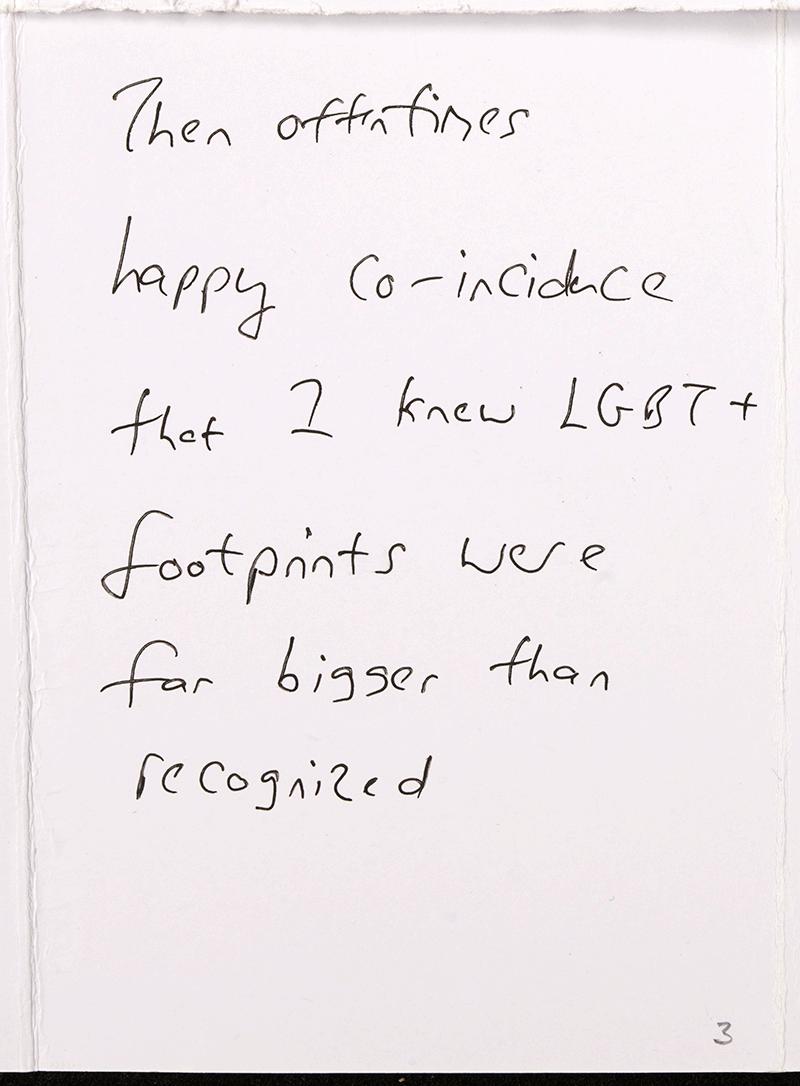 Then oftentimes
happy co-incidence
that I knew LGBT+
footprints were
far bigger than
recognized
3